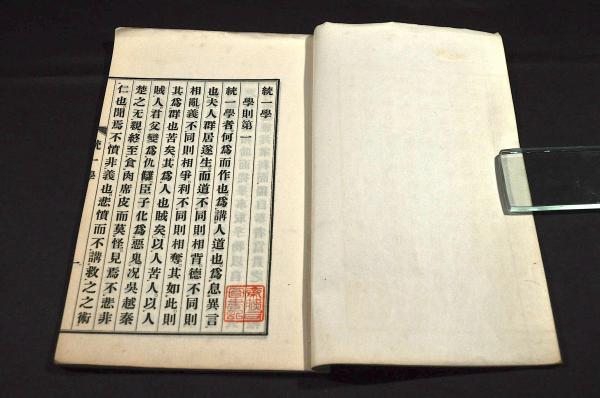 統一學
學則第一
統一學者何爲而作也爲講人道也爲息異言
也夫人群居遂生而道不同則相背德不同則
相亂義不同則相爭利不同則相奪其如此則
其爲群也苦矣其爲人也賊矣以人苦人以人
賊人君父變爲仇讎臣子化爲惡鬼况吳越秦
楚之无親終至食肉席皮而莫怪見焉不悲非
仁也聞焉不憤非義也悲憤而不講救之之術
統一學